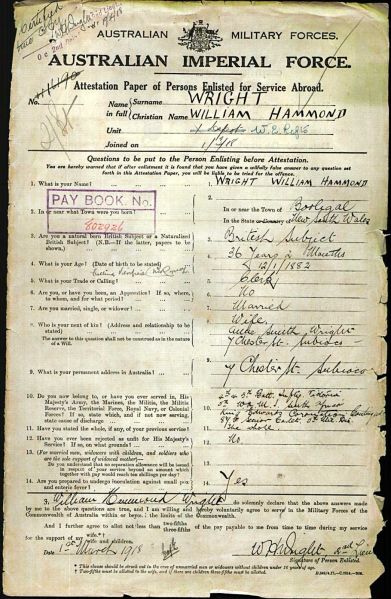 AUSTRALIAN MILITARY FORCES.
AUSTRALIAN IMPERIAL FORCE.
Attestation Paper of Persons Enlisted for Service Abroad.
No.
Name in full
Surname WRIGHT
Christian Name WILLIAM HAMMOND
Unit Depot W. E. Regts
Joined on 1/3/18
Questions to be put to the Person Enlisting before Attestation.
You are hereby warned that if after enlistment it is found that you have given a wilfully false answer to any of the following questions set
forth in this Attestation Paper, you will be liable to be tried for the offence.
1. What is your Name?
1. WRIGHT WILLIAM HAMMOND
PAY BOOK. No.
2. In or near what Town were you born?
2. In or near the Town of Booligal
In the State or New South Wales
3. Are you a natural born British Subject or a Naturalized
British Subject? (N.B.—If the latter, papers to be
shown.)
3. British Subject
4. What is your Age? (Date of birth to be stated)
4. 36 Years 2 Months
12/1/1882
5. What is your Trade or Calling?
5. Clerk
6. Are you, or have you been, an Apprentice? If so, where,
to whom, and for what period?
6. No
7. Are you married, single, or widower?
7. Married
8. Who is your next of kin? (Address and relationship to be
stated)
The answer to this question shall not be construed as in the nature
of a Will.
8. Wife
Smith Wright
7 Chester St. Subiaco
9. What is your permanent address in Australia?
9. 7 Chester St. Subiaco
10. Do you now belong to, or have you ever served in, His
Majesty's Army, the Marines, the Militia, the Militia
Reserve, the Territorial Force, Royal Navy, or Colonial
Forces? If so, state which, and if not now serving,
state cause of discharge
10.
11. Have you stated the whole, if any, of your previous service?
11. The whole
12. Have you ever been rejected as unfit for His Majesty's
Service? If so, on what grounds?
12. No
13. (For married men, widowers with children, and soldiers who
are the sole support of widowed mother)—
Do you understand that no separation allowance will be issued
in respect of your service beyond an amount which
together with pay would reach ten shillings per day?
13.
14. Are you prepared to undergo inoculation against small pox
and enteric fever?
14. Yes
I, William Hammond Wright do solemnly declare that the above answers made
by me to the above questions are true, and I am willing and hereby voluntarily agree to serve in the Military Forces of the
Commonwealth of Australia within or beyond the limits of the Commonwealth.
And I further agree to allot not less than two-fifths three-fifths of the pay payable to me from time to time during my service
for the support of my wife.* wife and children.
Date 1st March 1918
W H Wright
Signature of Person Enlisted.
* This clause should be struck out in the case of unmarried men or widowers without children under 16 years of age.
† Two-fifths must be allotted to the wife, and if there are children three-fifths must be allotted.